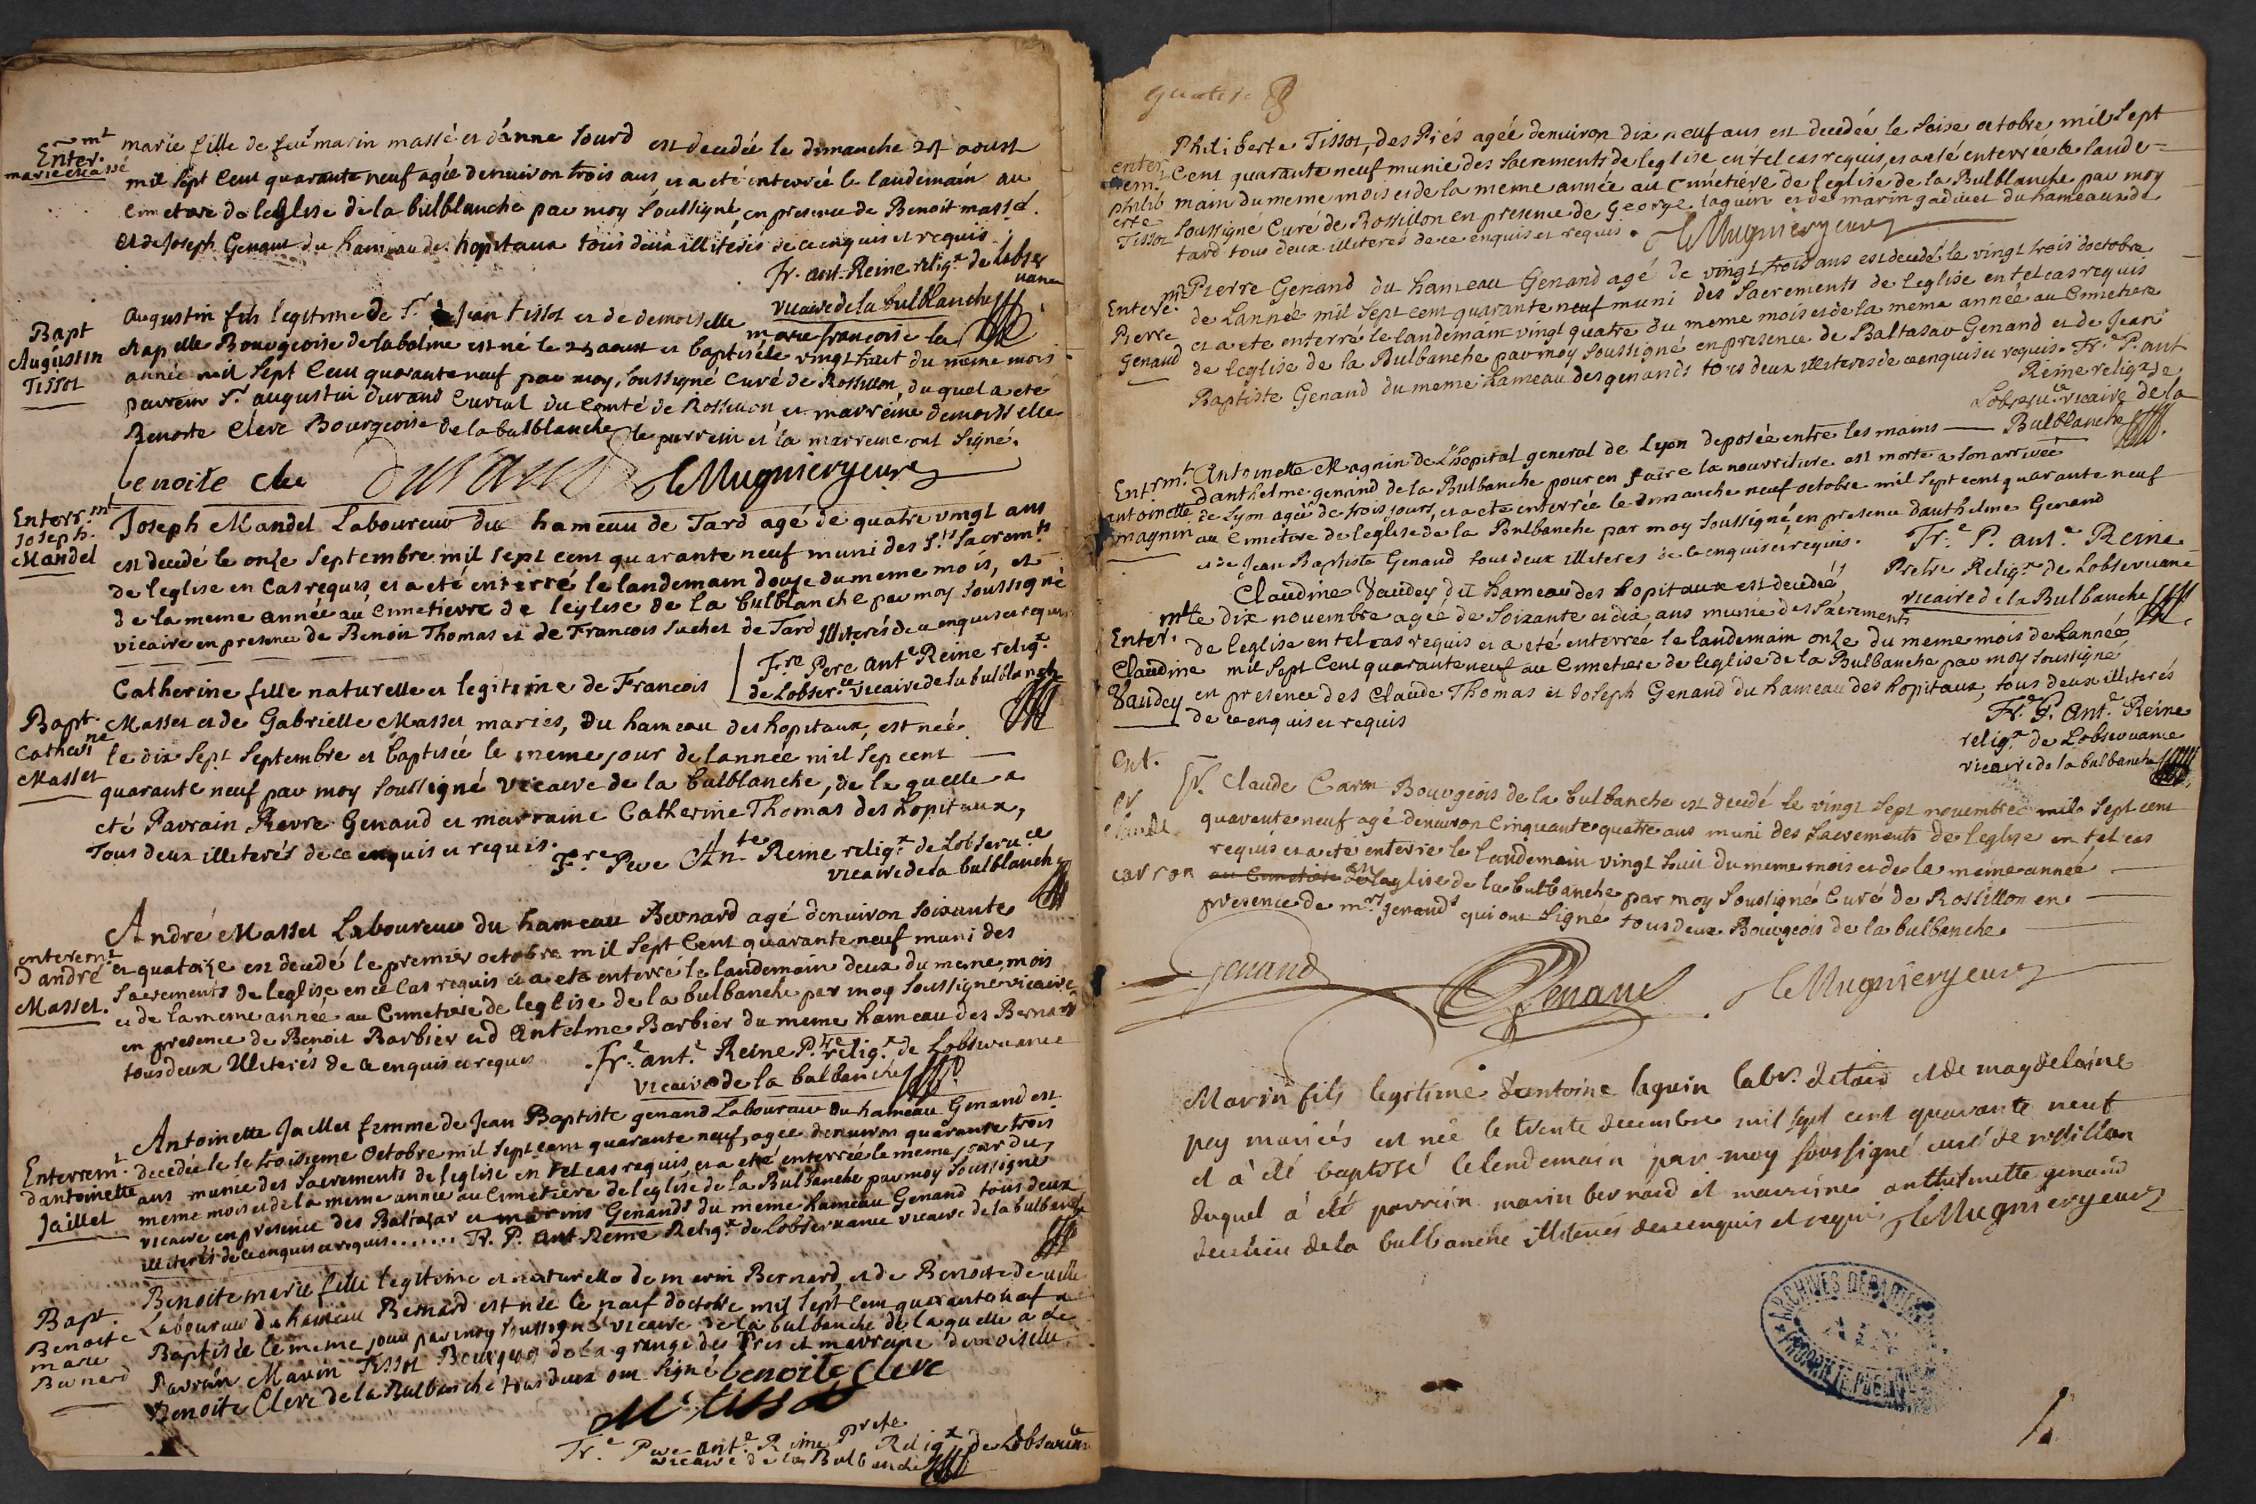 Enter.mt
marie massé
marie fille de feu marin massé et d'anne Sourd est decedée le dimanche aoust
mil sept cent quarante neuf agée denuiron trois ans, et a eté enterrée le landemain au
cimetiere de leglise de la bulblanche par moy soussigné en presence de Benoit massé.
et de joseph Genaud du hameau des hopitaux tous deux illiterés de ce enquis et requis.
fr. ant Reine relig.x de lobser
uance
vicaire de la bulblanche
Bapt
Augustin
Tissot
augustin fils legitime de Sr. jean tissot et de demoiselle
marie francoise la
chapelle Bourgeoise de la balme est né le aoust et baptisé le vingt huit du meme mois
année mil sept cent quarante neuf par moy, soussigné curé de Rossillon, du quel a eté
parrein Sr. augustin durand curial du comté de Rossillon et marreine demoisselle
Benoite clerc Bourgeoise de la bulblanche le parrein et la marreine ont signé.
durand leMugnieryeure
Enterr.mt
Joseph
Mandel
Joseph Mandel Laboureur du hameau de Tard agé de quatre vingt ans
est decedé le onze septembre mil sept cent quarante neuf muni des Sts. Sacrem.ts
de leglise en cas requis, et a eté enterré le landemain douze du meme mois, et
de la meme année au cimetierre de leglise de la bulblanche par moy soussigné
vicaire en presence de Benoit Thomas et de Francois suchet de Tard illiterés de ce enquis et requis
Fre Pere ante Reine relig.x
de lobser.ce vicaire de la bulblanche
Bapt.
Catherine
Masset
Catherine fille naturelle et legitime de Francois
Masset et de Gabrielle Masset mariés, du hameau des hopitaux, est née
le dix sept septembre et baptisée le meme jour de lannée mil sep cent
quarante neuf par moy soussigné vicaire de la bulblanche, de la quelle a
eté Parrain Pierre Genaud et marraine Catherine Thomas des hopitaux,
Tous deux illiterés de ce enquis et requis.
Fre Pere Ante Reine relig.x de lobseru.ce
vicaire de la bulblanche
enterem.t
d'andré
Masset.
André Masset Laboureur du hameau Bernard agé denuiron soixante
et quatorze est decedé le premier octobre mil sept cent quarante neuf muni des
sacrements de leglise en ce cas requis et a eté enterré le landemain deux du meme mois
et de la meme année au cimetiere de leglise de la bulbanche par moy soussigné vicaire
en presence de Benoit Barbier et d'Antelme Barbier du meme hameau des Bernard
tous deux illiterés de ce enquis et requis
fr.e ant.e Reine P.tre relig.x de Lobseruance
vicaire de la bulbanche
Enterrem.t
d'antoinette
Jaillet
Antoinette Jaillet femme de Jean Baptiste genand Laboureur du hameau Genand est
decedée le le troisieme Octobre mil sept cent quarante neuf, agée denuiron quarante trois
ans munie des sacrements de leglise en tel cas requis, et a eté enterrée le meme jour du
meme mois et de la meme année au cimetiere de leglise de la Bulbanche par moy soussigné
vicaire en presence des Baltazar et marins Genands du meme hameau Genand tous deux
illiterés de ce enquis et requis....... fr. P. ant Reine Relig.x de Lobseruance vicaire de la bulbanche
Bapt.
Benoite
marie
Bernard
Benoite marie fille legitime et naturelle de marin Bernard, et de Benoite deuille
Laboureur du hameau Bernard est née le neuf doctobre mil sept cent quarante neuf a
Baptisée le meme jour par moy soussigné vicaire de la bulbanche de laquelle a eté
Parrain Marin Tissot Bourgeois de la grange des Pres et marraine demoiselle
Benoite Clerc de la Bulbanche tous deux ont signé benoite clerc
M. tissot
Fr.e Pere ant.e Reine Prete. Relig.x de Lobseruance
vicaire de la Bulbanche
enter
rem.t
philib
erte
Tissot
Philiberte Tissot, des Piés agée denuiron dix neuf ans est decedée le seise octobre mil sept
Cent quarante neuf munie des sacrements de leglise en tel cas requis, et a eté enterrée le lande-
main du meme mois et de la meme année au cimétiére de leglise de la Bulblanche par moy
soussigné Curé de Rossillon en presence de george laguin et de marin du hameau de
tard tous deux illiterés de ce enquis et requis. leMugnieryeure
Enterem.t
Pierre
Genaud
Pierre Genand du hameau Genand agé de vingt trois ans est decedé le vingt trois doctobre
de Lannée mil sept cent quarante neuf muni des sacrements de leglise en tel cas requis
et a eté enterré le landemain vingt quatre du meme mois et de la meme année au cimetiere
de leglise de la Bulbanche par moy soussigné en presence de Baltasar Genand et de Jean
Baptiste Genand du meme hameau des genands tous deux illiteres de ce enquis et requis. Fr.e P. ant
Reine relig.x de
Lobseru.ce vicaire de la
Bulblanche
Enterm.t
antoinette
magnin
Antoinette Magnin de L'hopital general de Lyon deposée entre les mains
danthelme genand de la Bulbanche pour en faire la nourriture est morte a son arrivée
de Lyon agée de trois jours, et a eté enterrée le dimanche neuf octobre mil sept cent quarante neuf
au cimetiere de leglise de la Bulbanche par moy soussigné, en presence danthelme Genand
et de Jean Baptiste Genand tout deux illiteres de ce enquis et requis.
Fr.e P. ant.e Reine
Pretre Relig.x de Lobseruance
vicaire de la Bulbanche
Enter.mt
Claudine
Vaudey
Claudine Vaudey du hameau des hopitaux est decedée
le dix novembre agée de soixante et dix, ans munie des sacrements
de leglise en tel cas requis et a eté enterrée le landemain onze du meme mois de lannée
mil sept cent quarante neuf au cimetiere de leglise de la Bulbanche par moy soussigné
en presence des Claude Thomas et Joseph Genand du hameau des hopitaux, tous deux illiterés
de ce enquis et requis
Fr.e P. Ant.e Reine
relig.x de Lobseruance
vicaire de la bulbanche
Ent.
Sr
claude
carron
Sr. Claude Caron Bourgeois de la bulbanche est decedé le vingt sept novembre mil sept cent
quarente neuf agé denuiron cinquante quatre ans muni des sacrements de leglise en tel cas
requis et a eté enterré le landemain vingt huit du meme mois et de la méme année
au cimetiere de leglise de la bulbanche par moy soussigné Curé de Rossillon en
presence de mrs genands qui ont signé tous deux Bourgeois de la bulbanche.
Genand Genand leMugnieryeure
Marin fils legitime d'antoine laguin labr. de tard et de magdelaine
pey mariés est né le trente decembre mil sept cent quarante neuf
et à été baptisé le lendemain par moy soussigné curé de rossillon
duquel à été parrein marin bernard et marreine anthelmette genaud
de la bulbanche illiterés de ce enquis et requis leMugnieryeure
ARCHIVES DÉPARTEMENTALES
AIN
PROPRIÉTÉ PUBLIQUE